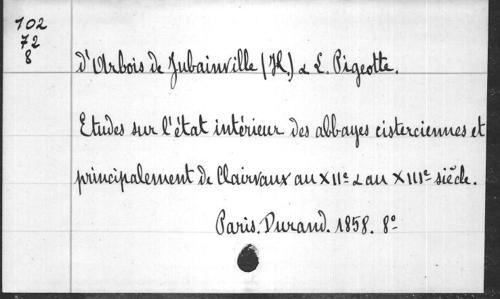 102
72
8
d'Arbois de Jubainville (H.) & L. Pigeotte.
Etudes sur l'état intérieur des abbayes cisterciennes et
principalement de Clairvaux au XIIe & au XIIIe siècle.
Paris. Durand. 1858. 8º